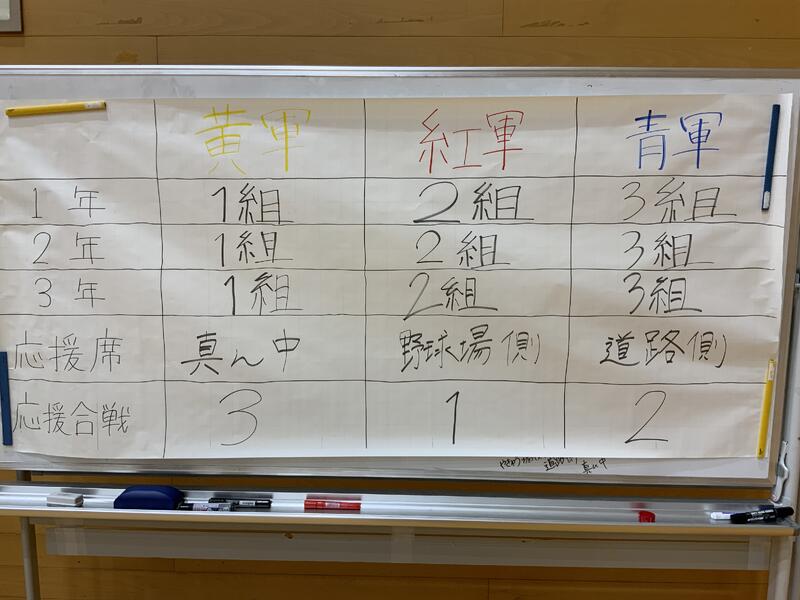 黄軍 紅軍 青軍
1年 1組 2組 3組
2年 1組 2組 3組
3年 1組 2組 3組
応援席 真ん中 野球場側 道路側
応援合戦 3 1 2
真ん中